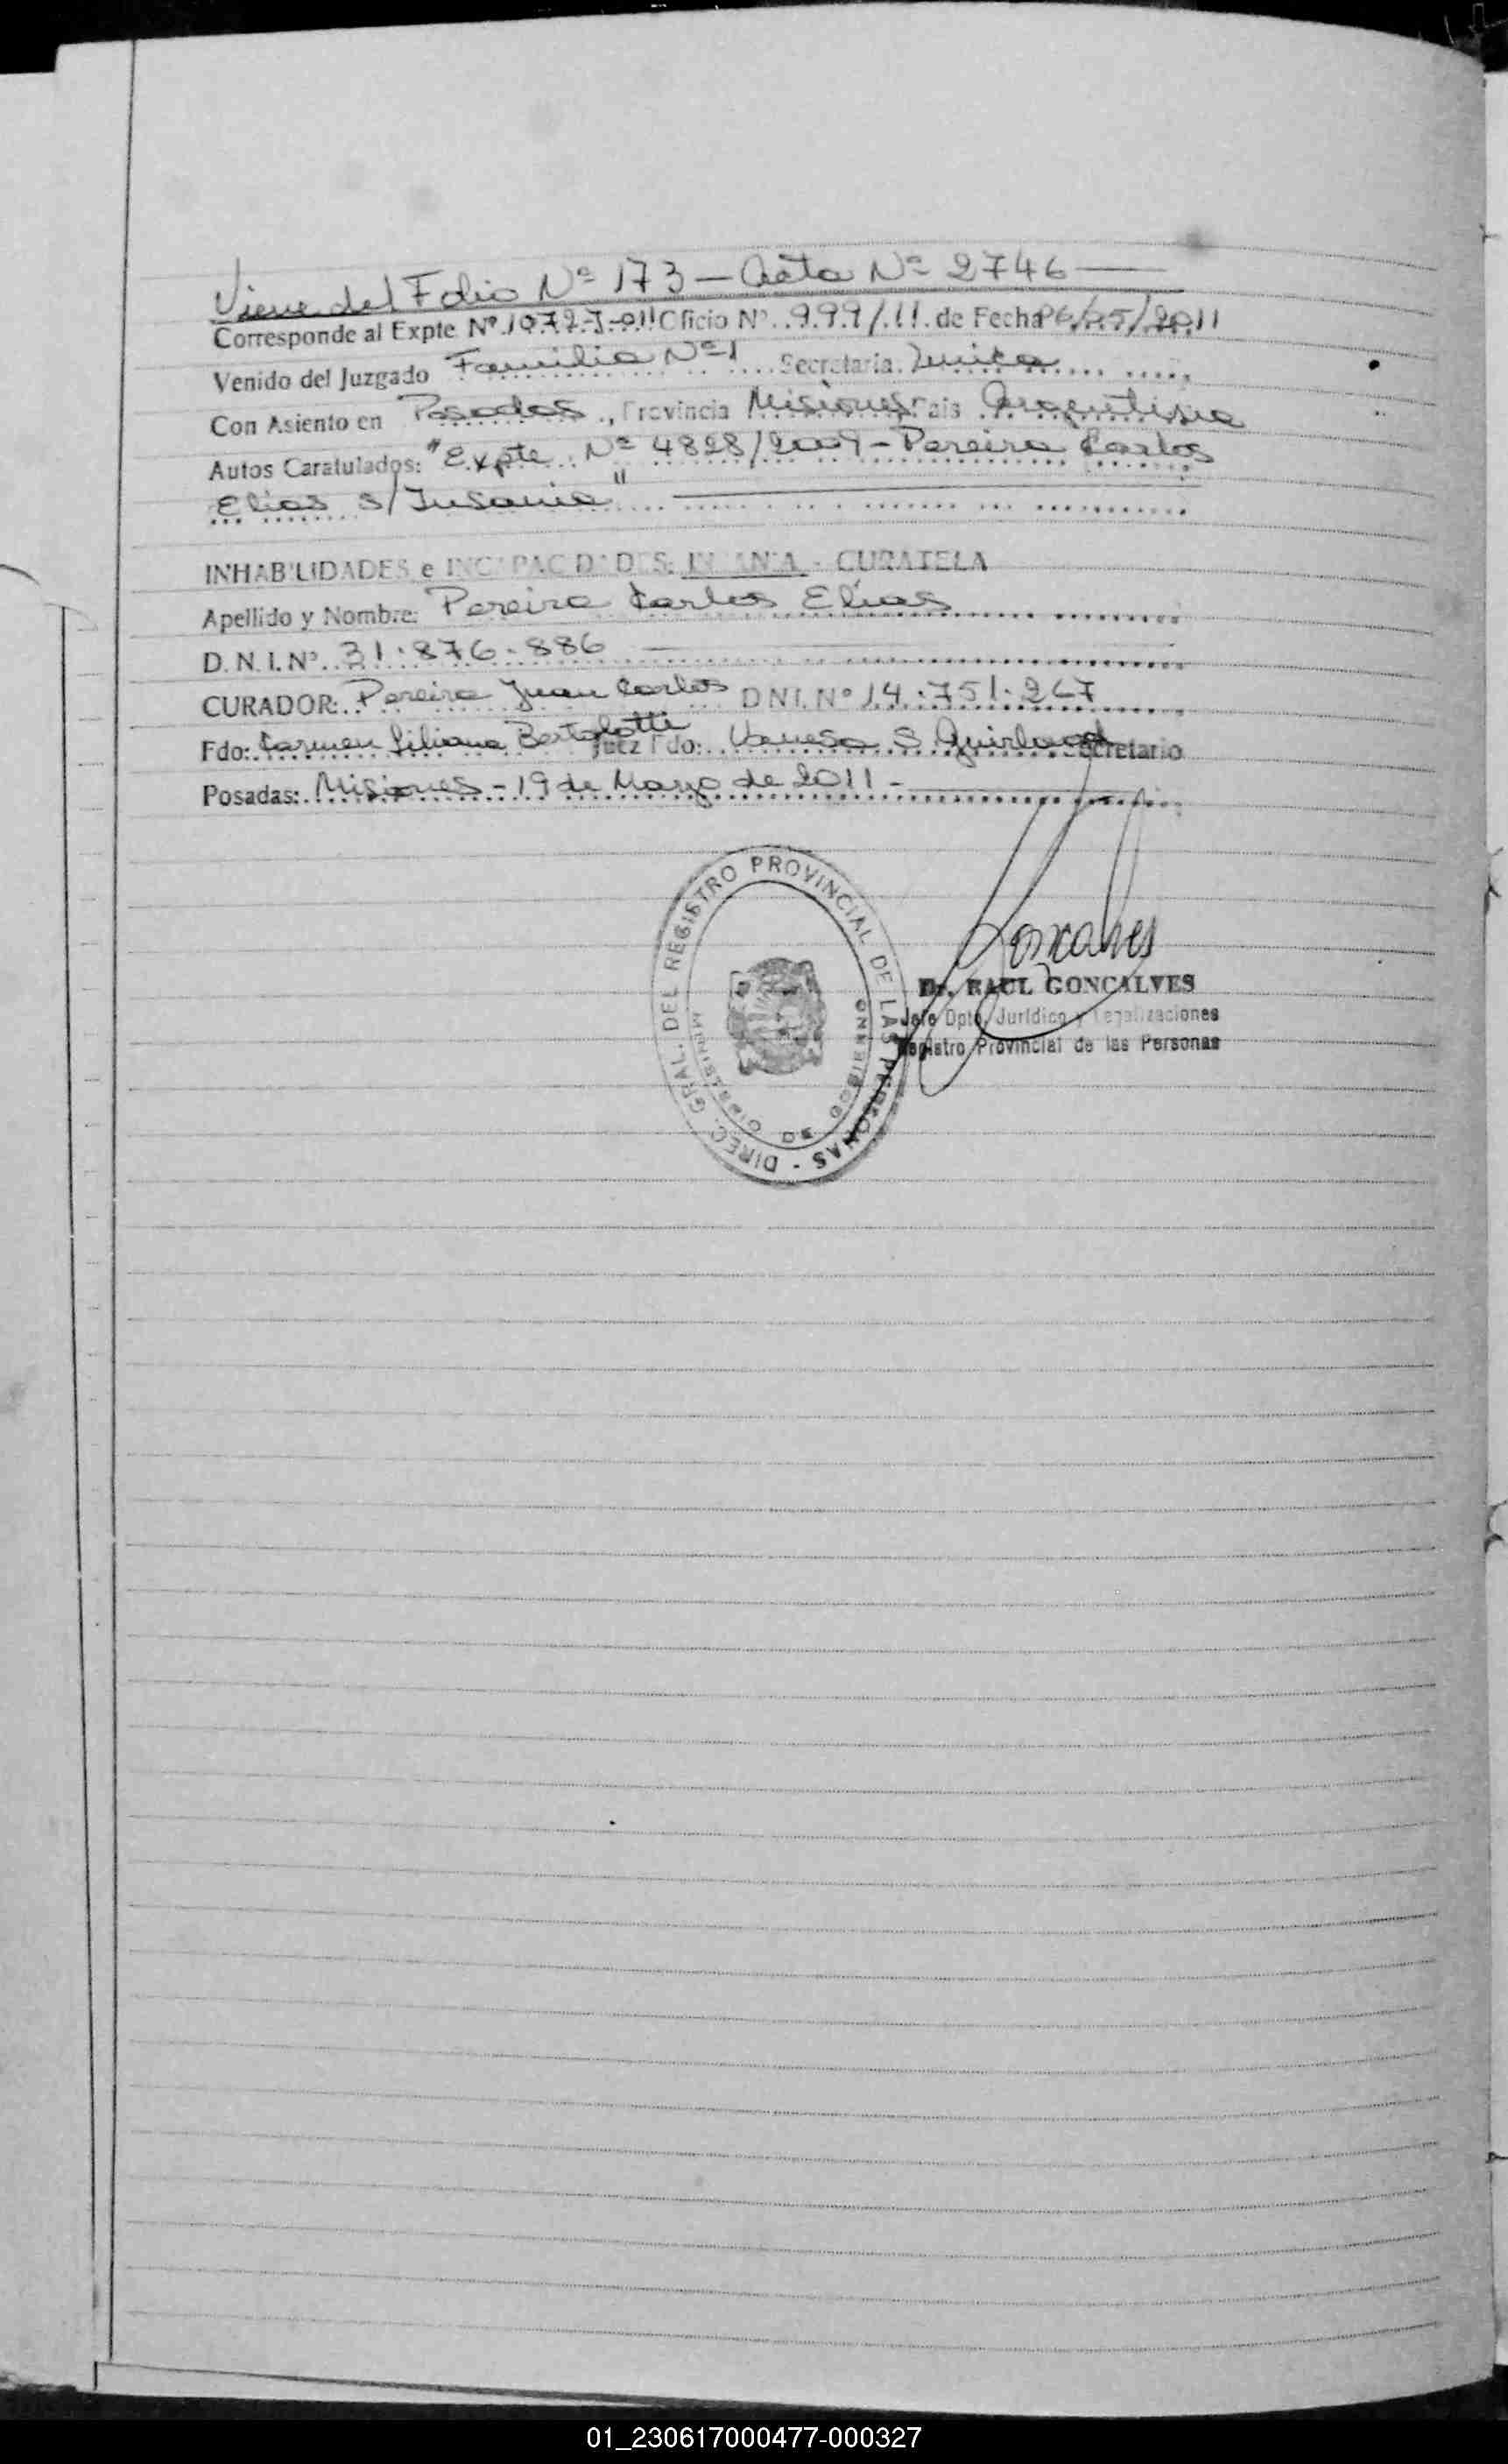 Viene del Folio Nº 173 — Acta Nº 2746
Corresponde al Expte Nº 1072-J-011 Oficio Nº 999/11 de Fecha 06/05/2011
Venido del Juzgado Familia Nº 1 Secretaria Unica
Con Asiento en Posadas, Provincia Misiones Pais Argentina
Autos Caratulados: "Expte Nº 4828/2009 - Pereira Carlos
Elias s/ Insania"
INHABILIDADES e INCAPACIDADES: INSANIA - CURATELA
Apellido y Nombre: Pereira Carlos Elias
D.N.I.Nº 31.876.886
CURADOR: Pereira Juan Carlos DNI.Nº 14.751.267
Fdo: Carmen Liliana Bertolotti Juez Fdo: Vanesa S Secretario
Posadas: Misiones - 19 de Mayo de 2011 -
DIREC. GRAL. DEL REGISTRO PROVINCIAL DE LAS PERSONAS -
MINISTERIO DE GOBIERNO
Goncalves
Dr. RAUL GONCALVES
Jefe Dpto. Jurídico y Legalizaciones
Registro Provincial de las Personas
01_230617000477-000327